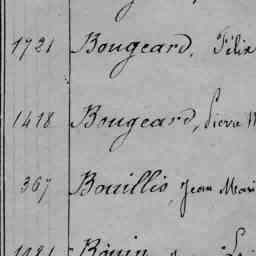 1721 Bougeard, Félix
1418 Bougeard, Pierre M
367 Bouillis, Jean Mari